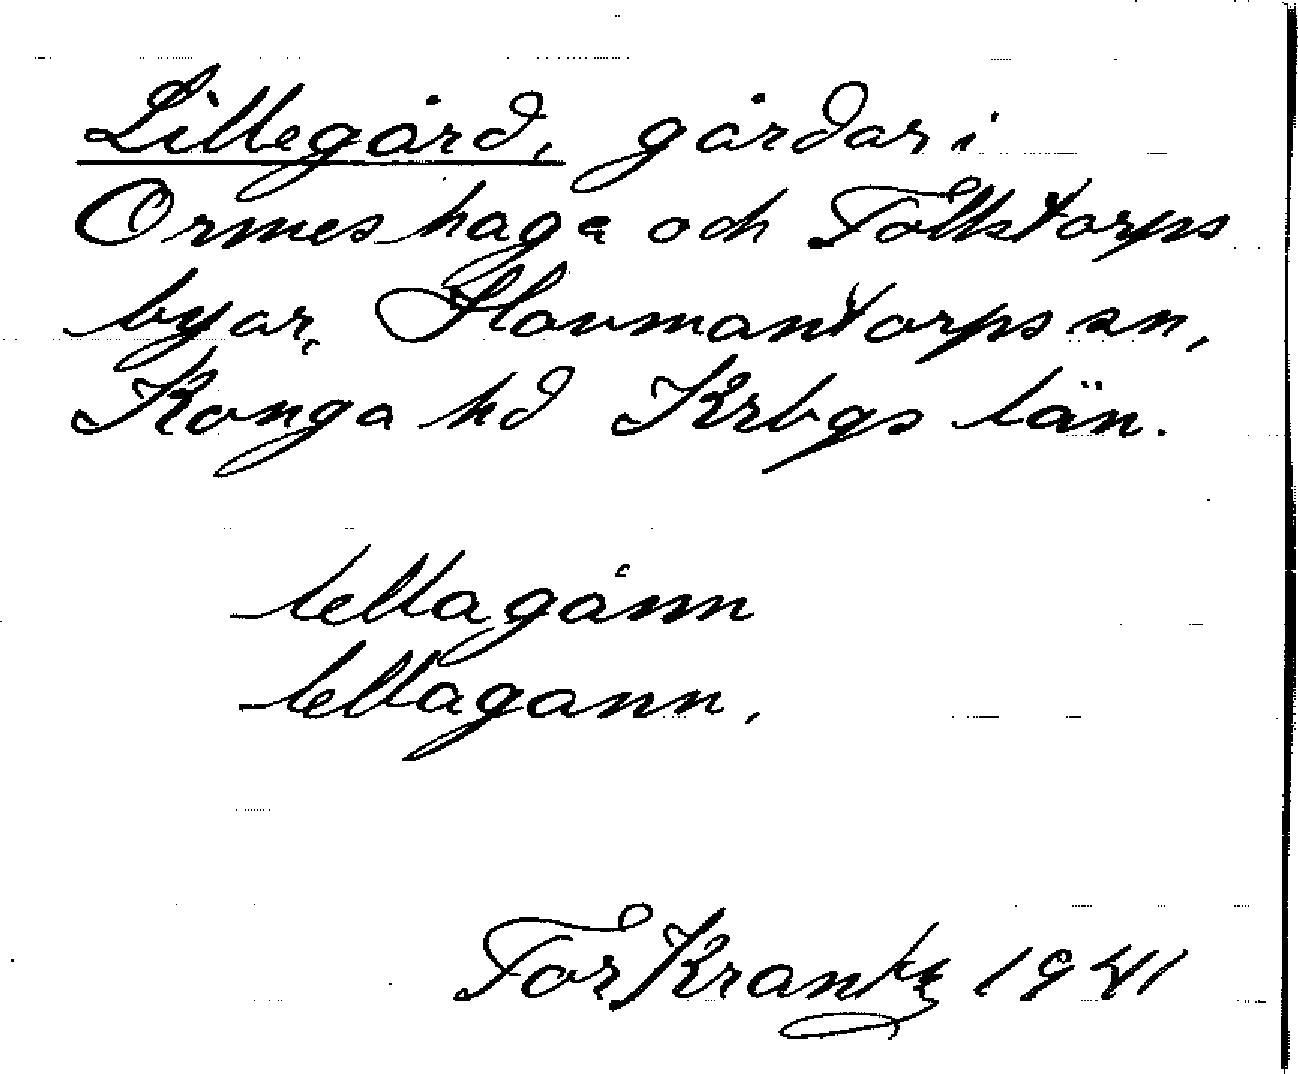 Lillegård, gårdar i
Ormeshaga och Folkstorps
byar, Hovmantorps sn,
Konga hd Krbgs län.
lellagånn
lellagann.
Tor Krantz 1941